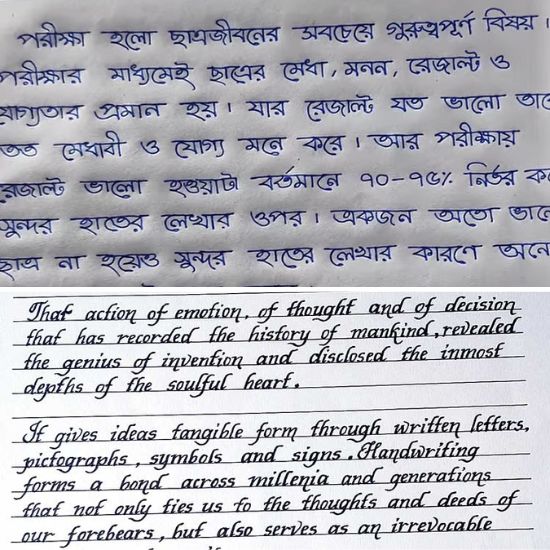 পরীক্ষা হলো ছাত্রজীবনের সবচেয়ে গুরুত্বপূর্ণ বিষয়।
পরীক্ষার মাধ্যমেই ছাত্রের মেধা, মনন, রেজাল্ট ও
যোগ্যতার প্রমান হয়। যার রেজাল্ট যত ভালো তাকে
তত মেধাবী ও যোগ্য মনে করে। আর পরীক্ষায়
রেজাল্ট ভালো হওয়াটা বর্তমানে ৭০-৭৫% নির্ভর
সুন্দর হাতের লেখার ওপর। একজন অতো
ছাত্র না হয়েও সুন্দর হাতের লেখার কারণে
That action of emotion, of thought and of decision
that has recorded the history of mankind, revealed
the genius of invention and disclosed the inmost
depths of the soulful heart.
It gives ideas tangible form through written letters,
pictographs, symbols and signs. Handwriting
forms a bond across millenia and generations
that not only ties us to the thoughts and deeds of
our forebears, but also serves as an irrevocable